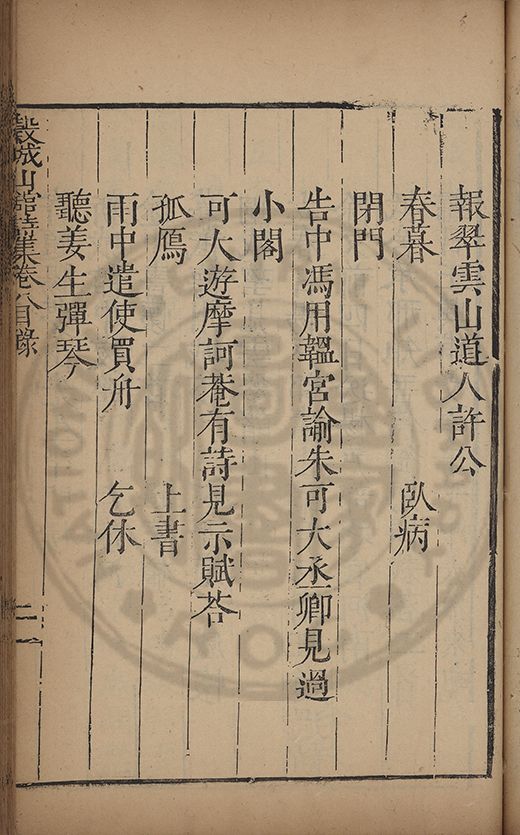 報翠雲山道人許公
春暮 臥病
閉門
告中馮用韞宮諭朱可大丞卿見過
小閣
可大遊摩訶菴有詩見示賦荅
孤鴈 上書
雨中遣使買舟 乞休
聽姜生彈琴
穀城山館詩集卷八目錄 二